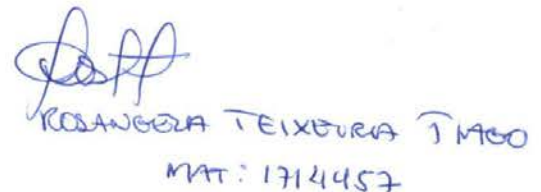 ROSANGELA TEIXEIRA TIAGO
MAT: 1714457